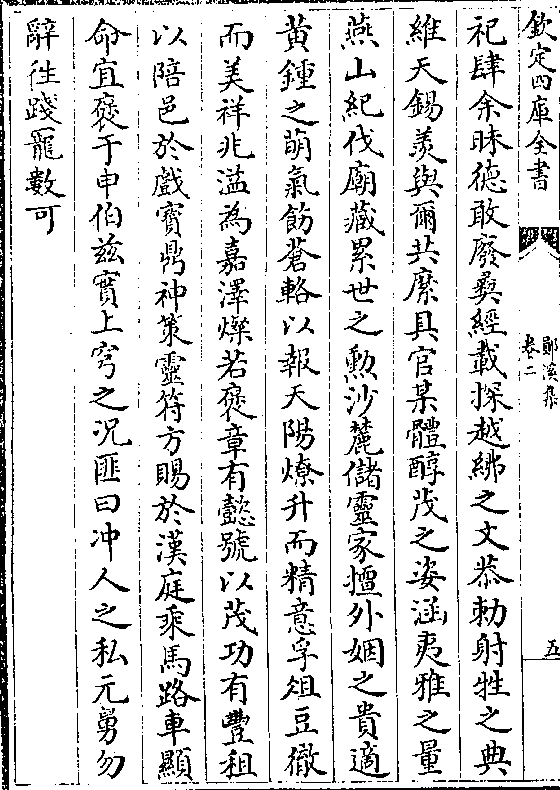 欽定四庫全書
鄖溪集
卷二
五
祀肆余昧德敢廢彝經載探越紼之文恭勅射牲之典
維天錫羡與爾共縻具官某體醇茂之姿涵夷雅之量
燕山紀伐廟藏累世之勲沙麓儲靈家擅外姻之貴適
黄鍾之萌氣飭蒼輅以報天陽燎升而精意孚俎豆徹
而美祥兆溢為嘉澤燦若褒章有懿號以茂功有豐租
以陪邑於戲寳鼎神策靈符方賜於漢庭乘馬路車顯
命宜褒于申伯兹實上穹之况匪曰冲人之私元舅勿
辭徃踐寵數可